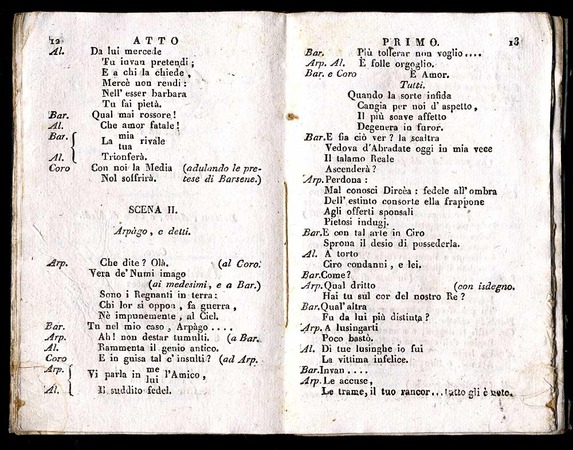 12 ATTO
Al. Da lui mercede
Tu invan pretendi;
E a chi la chiede,
Mercè non rendi:
Nell' esser barbara
Tu fai pietà.
Bar. Qual mai rossore!
Al. Che amor fatale!
Bar. mia
La rivale
tua
Al. Trionferà.
Coro Con noi la Media (adulando le pre-
Nol soffrirà. tese di Barsene.)
SCENA II.
Arpàgo, e detti.
Arp. Che dite? Olà. (al Coro.
Vera de' Numi imago
(ai medesimi, e a Bar.)
Sono i Regnanti in terra:
Chi lor si oppon, fa guerra,
Nè impunemente, al Ciel.
Bar. Tu nel mio caso, Arpàgo ....
Arp. Ah! non destar tumulti. (a Bar.
Al. Rammenta il genio antico.
Coro E in guisa tal c' insulti? (ad Arp.
Arp. me
Vi parla in l'Amico,
lui
Al. Il suddito fedel.
PRIMO. 13
Bar. Più tollerar non voglio....
Arp. Al. È folle orgoglio.
Bar. e Coro È Amor.
Tutti.
Quando la sorte infida
Cangia per noi d' aspetto,
Il più soave affetto
Degenera in furor.
Bar. E sia ciò ver? la scaltra
Vedova d'Abradate oggi in mia vece
Il talamo Reale
Ascenderà?
Arp. Perdona:
Mal conosci Dircèa: fedele all' ombra
Dell' estinto consorte ella frappone
Agli offerti sponsali
Pietosi indugj.
Bar. E con tal arte in Ciro
Sprona il desio di possederla.
Al. A torto
Ciro condanni, e lei.
Bar. Come?
Arp. Qual dritto (con isdegno.
Hai tu sul cor del nostro Re?
Bar. Qual' altra
Fu da lui più distinta?
Arp. A lusingarti
Poco bastò.
Al. Di tue lusinghe io fui
La vittima infelice.
Bar. Invan ....
Arp. Le accuse,
Le trame, il tuo rancor... tutto gli è noto.